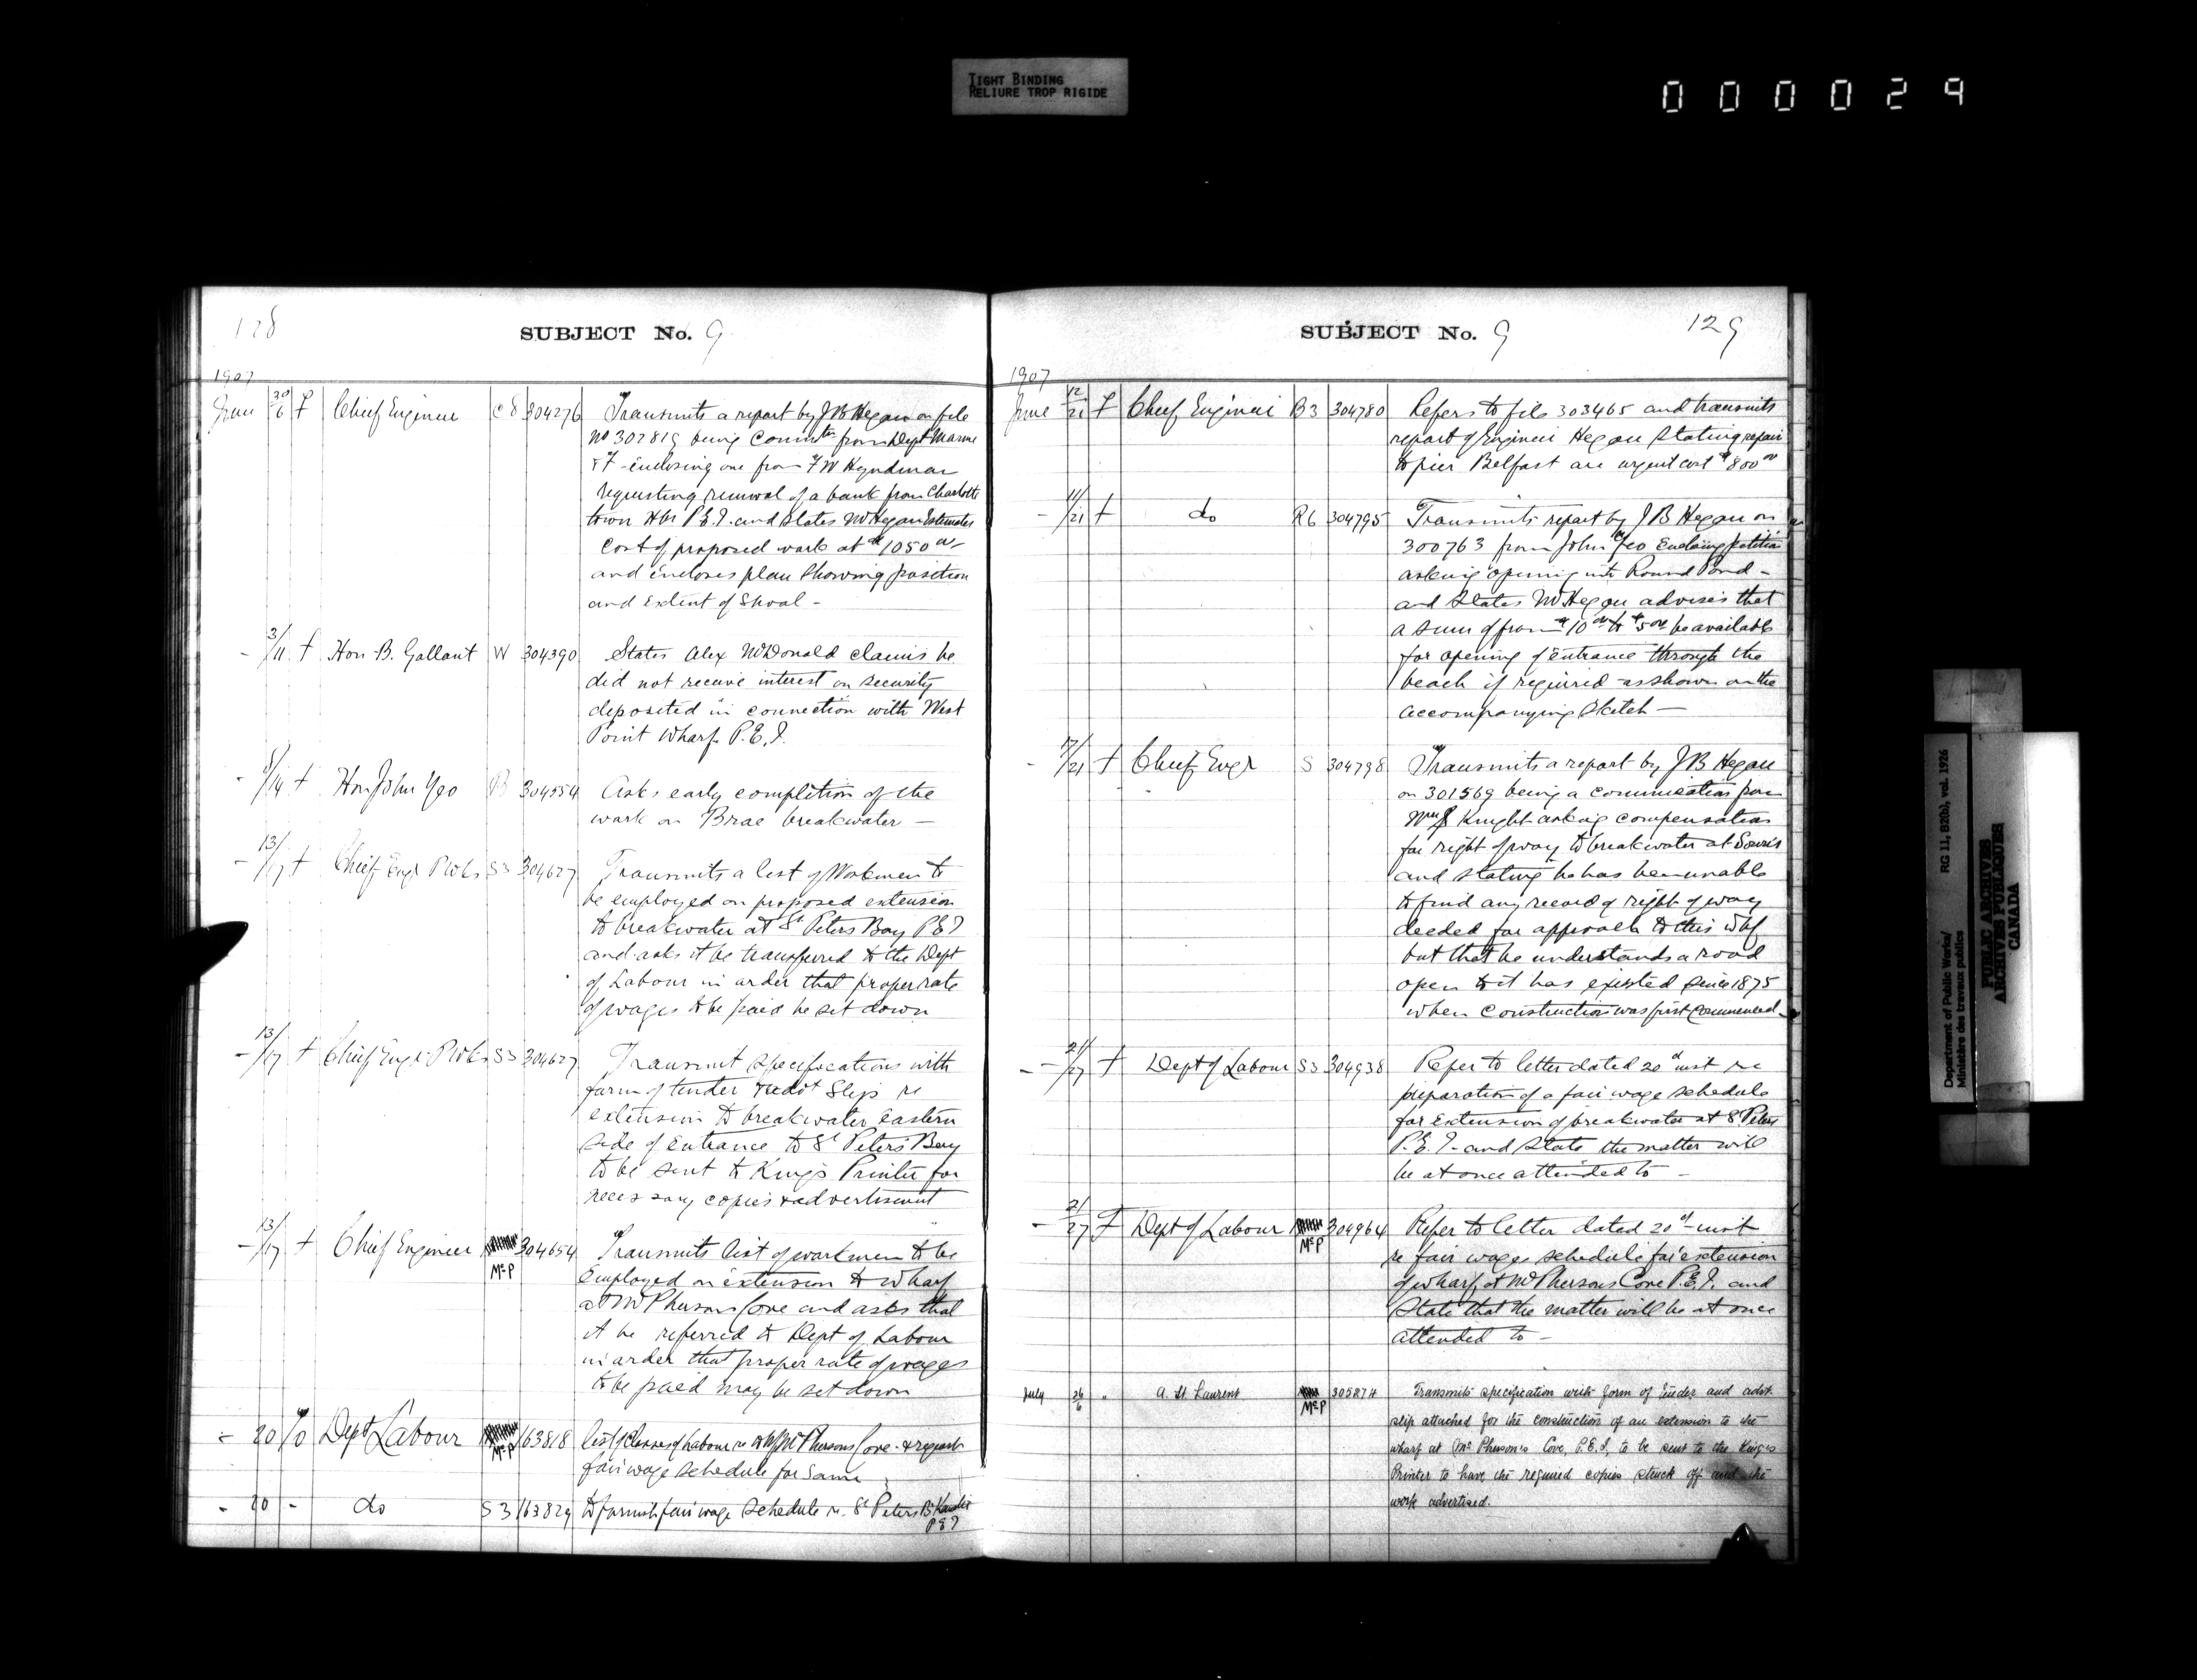 TIGHT BINDING
RELIURE TROP RIGIDE
000029
128
SUBJECT No. 9
1907
June 30/6 f Chief Engineer C8 304276 Transmits a report by J B Hegan on file
No 302819 being Commtn from Dept Marine
& F - enclosing one from F W Hyndman
requesting removal of a bank from Charlotte
town Hbr P.E.I. and states Mr Hegan Estimates
Cost of proposed work at $1050 00
and encloses plan showing position
and extent of Shoal -
- 3/11 f Hon B. Gallant W 304390 States Alex McDonald claims he
did not receive interest on security
deposited in connection with West
Point Wharf P.E.I.
- 8/14 f Hon John Yeo B 304554 Asks early completion of the
work on Brae breakwater -
- 13/17 f Chief Engr P Wks S3 304627 Transmits a list of Workmen to
be employed on proposed extension
to breakwater at St Peters Bay P E I
and asks it be transferred to the Dept
of Labour in order that proper rate
of wages to be paid be set down
- 13/17 f Chief Engr P Wks S3 304627 Transmit specifications with
form of tender & advt Slip re
extension to breakwater eastern
side of Entrance to St Peters Bay
to be sent to Kings Printer for
necessary copies & advertisment
- 13/17 f Chief Engineer McP 304654 Transmits list of workmen to be
Employed on extension to Wharf
at McPhersons Cove and asks that
it be referred to Dept of Labour
in order that proper rate of wages
to be paid may be set down
- 20 Dept Labour McP 163818 list of classes of Labour re McPhersons Cove & request
fair wage schedule for same
- 20 - do S3 163829 to furnish fair wage schedule re St Peters
P E I
SUBJECT No. 9
129
1907
June 12/21 f Chief Engineer B3 304780 Refers to file 303465 and transmits
report of Engineer Hegan stating repair
to pier Belfast are urgent cost $800 00
- 11/21 f do R6 304795 Transmits report by J B Hegan on
300763 from John Yeo Enclosing petition
asking opening into Round Pond -
and states Mr Hegan advises that
a sum of from be available
for opening of entrance through the
beach if required as shown on the
accompanying Sketch -
- 17/21 f Chief Engr S 304798 Transmits a report by J B Hegan
on 301569 being a communication from
Wm J Knight asking compensation
for right of way to breakwater at Souris
and stating he has been unable
to find any record of right of way
deeded for approach to this whf
but that he understands a road
open to it has existed since 1875
when Construction was first commenced.
- 21/27 f Dept of Labour S3 304938 Refer to letter dated 20th inst re
preparation of a fair wage schedule
for Extension of breakwater at St Peters
P.E.I. and State the matter will
be at once attended to -
- 21/27 f Dept of Labour McP 304964 Refer to letter dated 20th inst
re fair wages schedule for extension
of wharf at McPhersons Cove P.E.I. and
State that the matter will be at once
attended to -
July 26/6 " A. St Laurent McP 305874 Transmits specification with form of tender and advt.
slip attached for the construction of an extension to the
wharf at McPherson's Cove, P.E.I, to be sent to the King's
Printer to have the required copies struck off and the
work advertised.
Department of Public Works/ RG 11, B2(b), vol. 1926
Ministère des travaux publics
PUBLIC ARCHIVES
ARCHIVES PUBLIQUES
CANADA